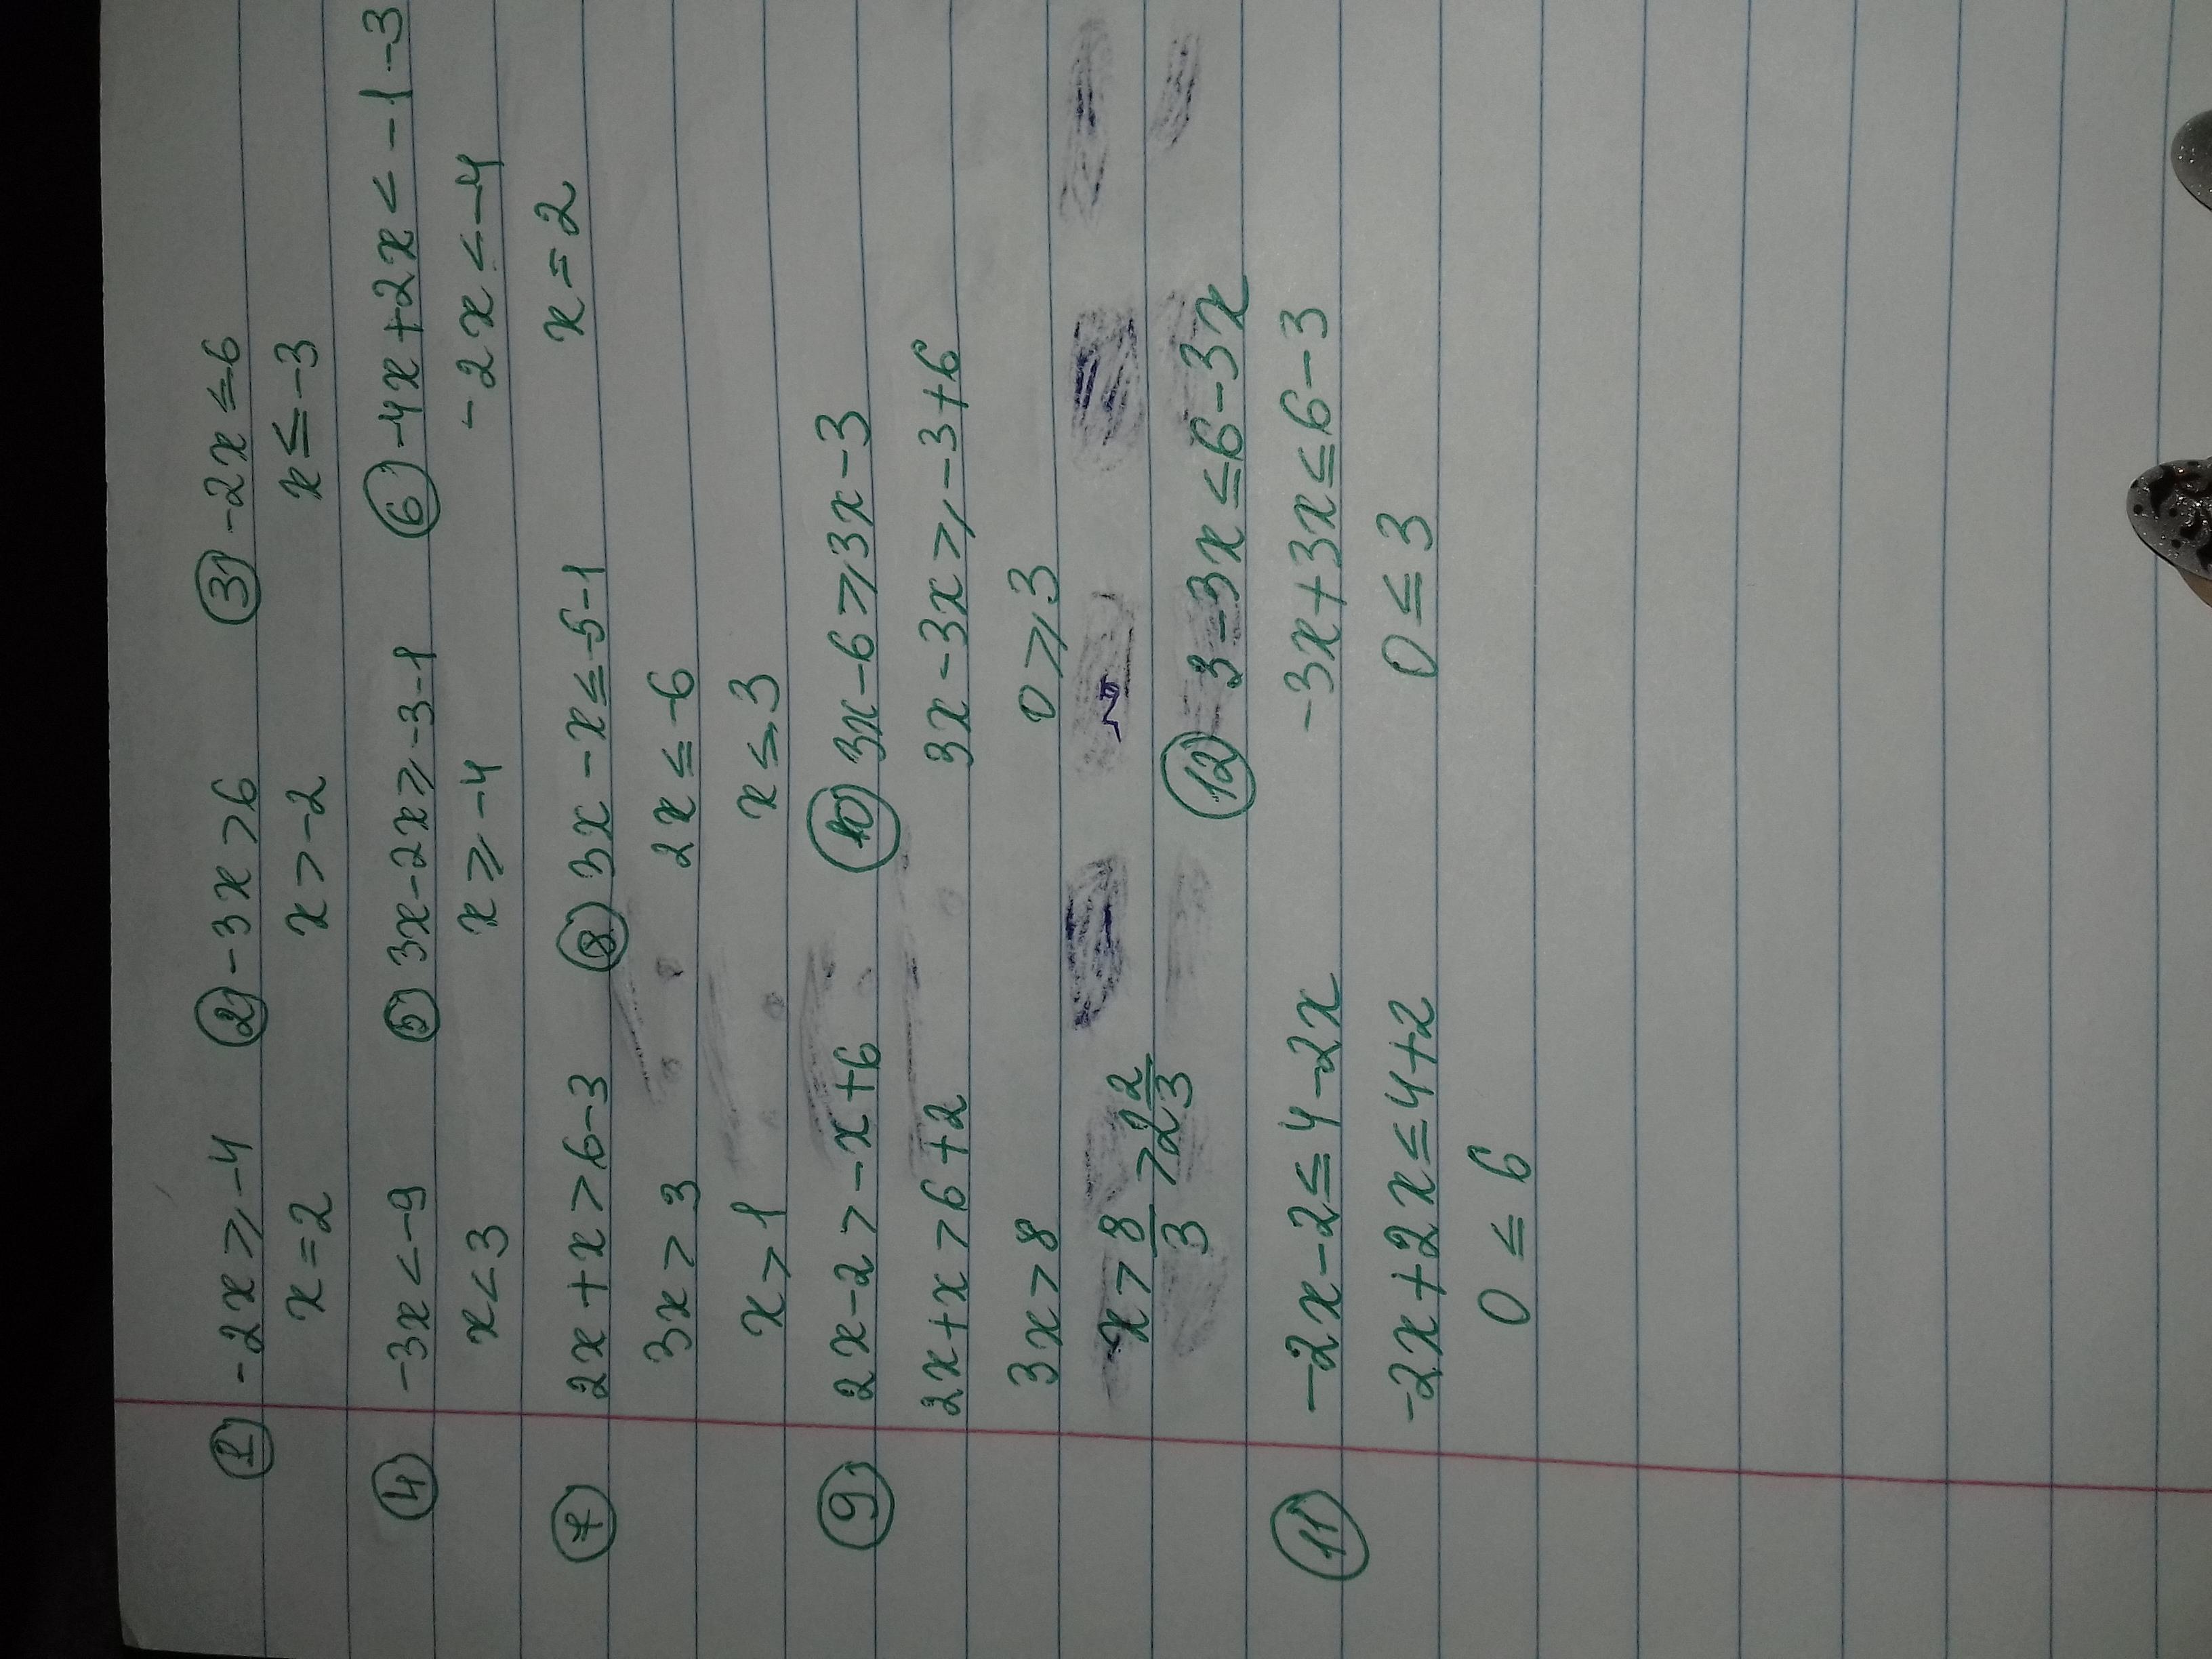 1) -2x ≥ -4 2) -3x > 6 3) -2x ≤ 6
x = 2 x > -2 x ≤ -3
4) -3x < -9 5) 3x - 2x ≥ -3 - 1 6) -4x + 2x ≤ -1 - 3
x < 3 x ≥ -4 -2x ≤ -4
x = 2
7) 2x + x > 6 - 3 8) 3x - x ≤ -5 - 1
3x > 3 2x ≤ -6
x > 1 x ≤ 3
9) 2x - 2 > -x + 6 10) 3x - 6 ≥ 3x - 3
2x + x > 6 + 2 3x - 3x ≥ -3 + 6
3x > 8 0 ≥ 3
x > 8/3 > 2 2/3
12) 3 - 3x ≤ 6 - 3x
11) -2x - 2 ≤ 4 - 2x -3x + 3x ≤ 6 - 3
-2x + 2x ≤ 4 + 2 0 ≤ 3
0 ≤ 6